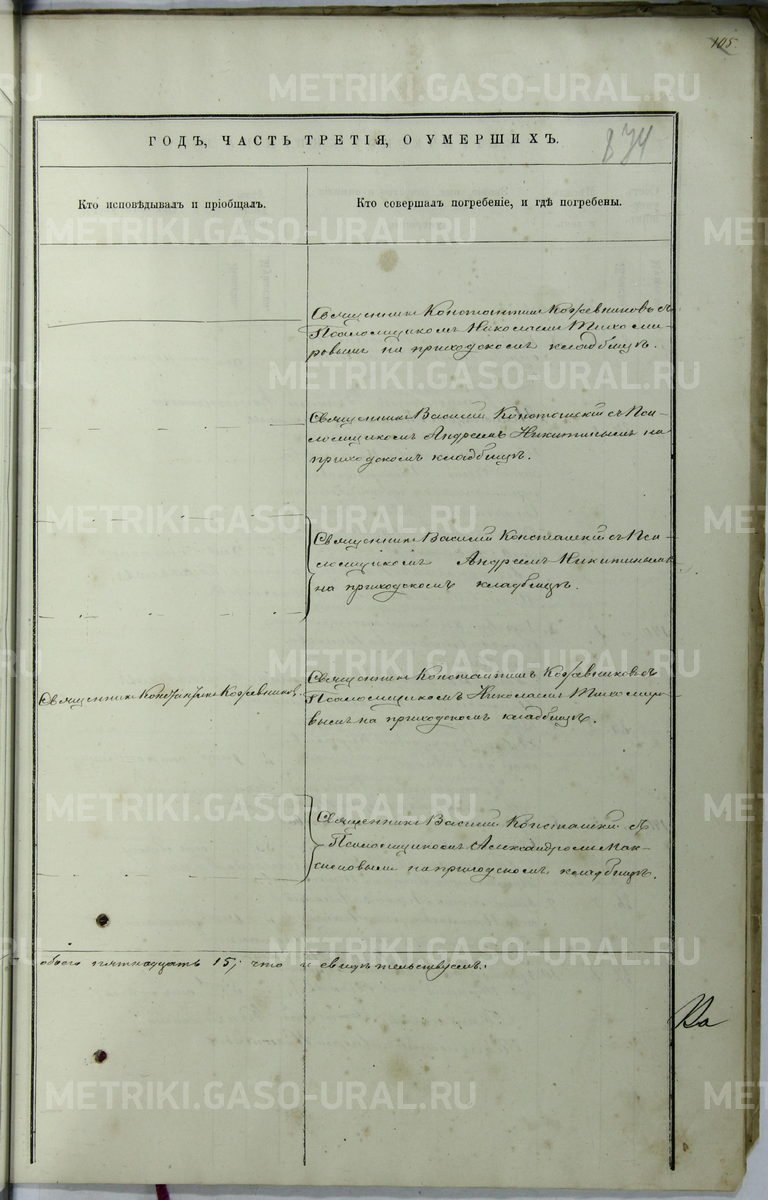 105
METRIKI.GASO-URAL.RU
ГОДЪ, ЧАСТЬ ТРЕТІЯ, О УМЕРШИХЪ.
874
Кто исповѣдывалъ и пріобщалъ.
Кто совершалъ погребеніе, и гдѣ погребены.
Священникъ Константинъ Кожевниковъ съ
Псаломщикомъ Николаемъ Тихоми-
ровымъ на приходскомъ кладбищѣ.
Священникъ Василій Конюташкій съ Пса-
ломщикомъ Андреемъ Никитинымъ на
приходскомъ кладбищѣ.
Священникъ Василій съ Пса-
ломщикомъ Андреемъ Никитинымъ
на приходскомъ кладбищѣ.
Священникъ Константинъ Кожевниковъ.
Священникъ Константинъ Кожевниковъ съ
Псаломщикомъ Николаемъ Тихоміро-
вымъ на приходскомъ кладбищѣ.
Священникъ Василій съ
Псаломщикомъ Александромъ Мак-
симовымъ на приходскомъ кладбищѣ.
обоего пятнадцать 15; что и свидѣтельствуемъ.